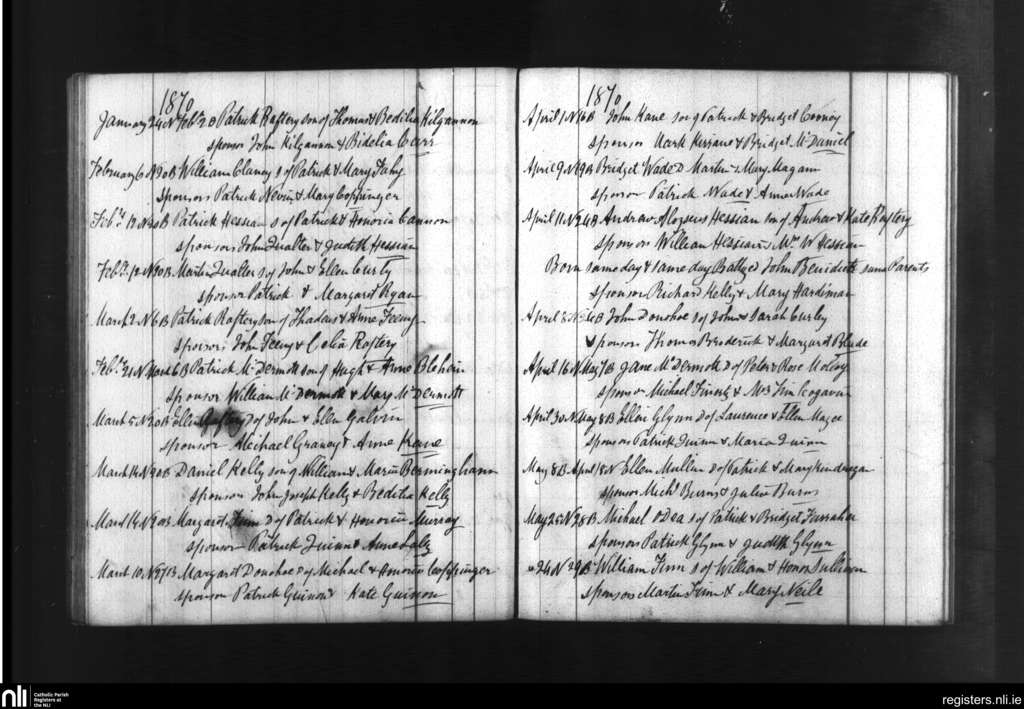 1870
January 24 N Feby 2 B Patrick Raftery son of Thomas & Bedilia Kilgannon
sponsor John Kilgannon & Bidelia Carr
February 6 N 20 B William Clancy s of Patrick & Mary Fahy
Sponsors Patrick Nevin & Mary Coppinger
Feby 13 N 20 B Patrick Hessian s of Patrick & Honoria Cannon
sponsors John Qualter & Judith Hessian
Feby 12 N 20 B Martin Qualter s of John & Ellen Curty
sponsor Patrick & Margaret Ryan
March 2 N 6 B Patrick Raftery son of Thadeus & Anne Feeny
sponsors John Feeny & Celia Raftery
Feby 21 N March 6 B Patrick McDermott son of Hugh & Anne Blehein
sponsor William McDermott & Mary McDermott
March 5 N 20 B Ellen D of John & Ellen Galvin
sponsor Michael Graney & Anne Keane
March 14 N 20 B Daniel Kelly son of William & Maria Bermingham
sponsor John Joseph Kelly & Bedilia Kelly
March 14 N 20 B Margaret Finn D of Patrick & Honoria Murray
sponsor Patrick Quinn & Anne Lally
March 10 N 27 B Margaret Donohoe D of Michael & Honoria Coppinger
sponsor Patrick Guinon & Kate Guinon
1870
April 1 N 6 B John Kane son of Patrick & Bridget Cooney
sponsor Mark Kirrane & Bridget McDaniel
April 9 N 9 B Bridget Wade D Martin & Mary Magann
sponsor Patrick Wade & Anne Wade
April 11 N 24 B Andrew Aloysius Hessian son of Andrew & Kate Raftery
sponsors William Hessian & Mrs W Hessian
Born same day & same day John Benidict same Parents
sponsor Richard Kelly & Mary Hardiman
April 3 N 24 B John Donohoe s of John & Sarah Curley
sponsors Thomas Broderick & Margaret Blade
April 16 N May 7 B Jane McDermott D of Peter & Rose Molloy
sponsor Michael & Mrs Tim Cogavan
April 30 N May 8 B Ellen Glynn D of Laurence & Ellen Magee
sponsors Patrick Quinn & Maria Quinn
May 8 B April 18 N Ellen Mullin D of Patrick & Mary
sponsor Michl Burns & Julia Burns
May 25 N 28 B Michael O Dea s of Patrick & Bridget Furraher
sponsors Patrick Glynn & Judith Glynn
" 24 N 29 B William Finn s of William & Honor Sullivan
sponsors Martin Finn & Mary Neile
nli Catholic Parish Registers at the NLI
registers.nli.ie